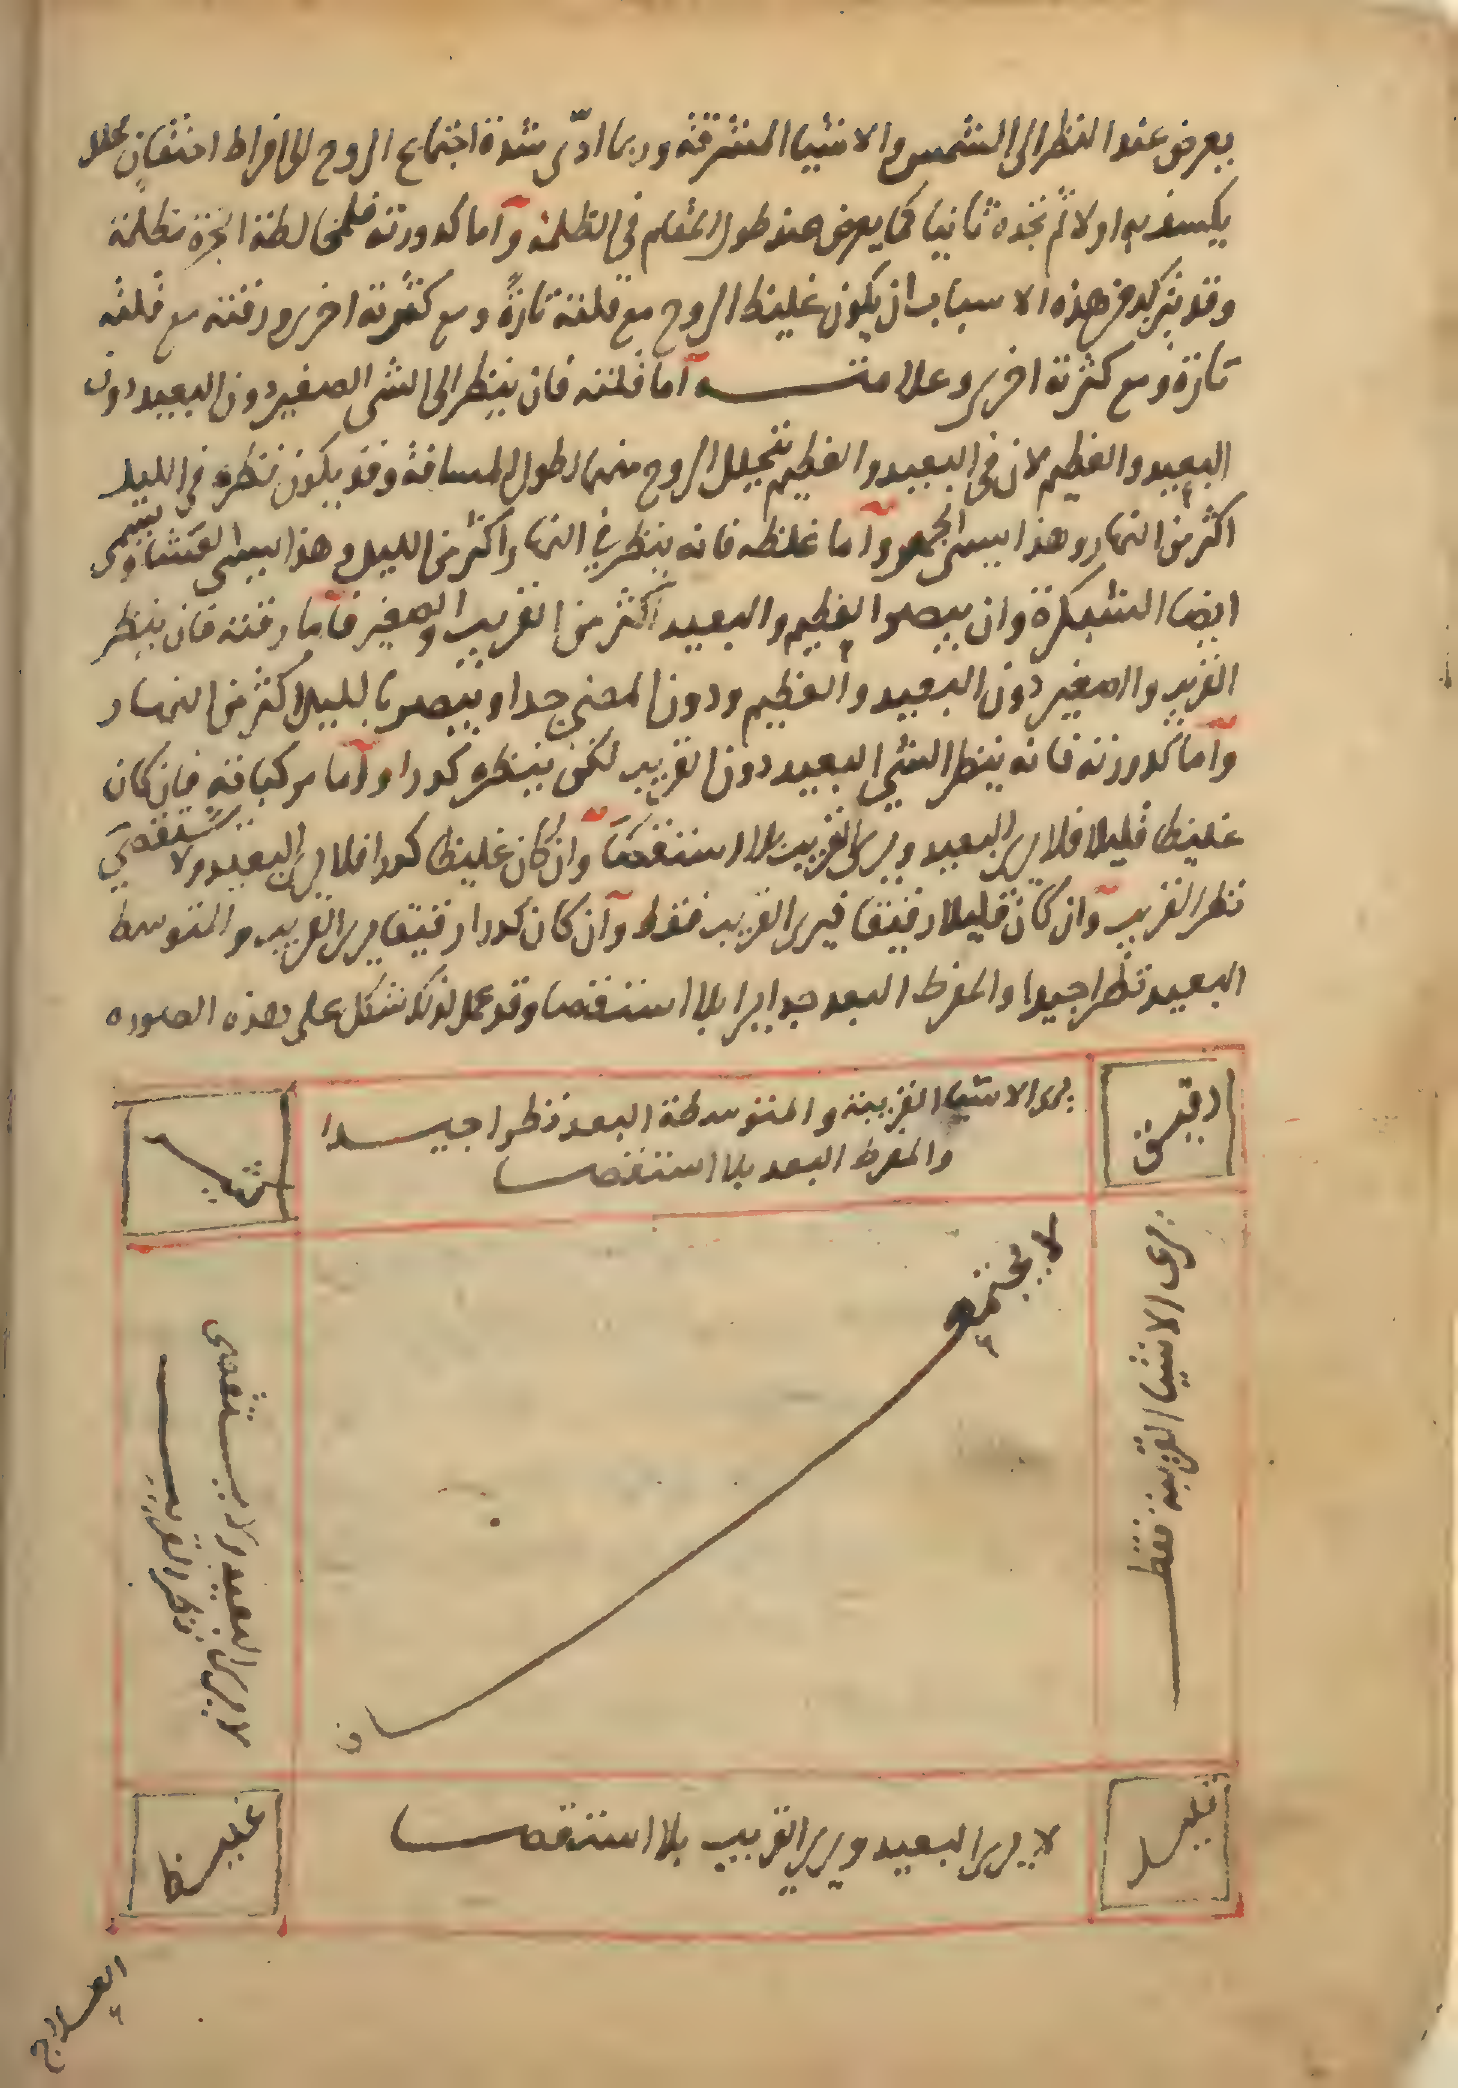 يعرض عند النظر الى الشمس والاشيا المشرقة وربما ادّى شدة اجتماع الروح الى افراط احتقان محلل
يكسف به اولا ثم نجده ثانيا كما يعرض عند طول المقام فى الظلمة وآما كدورته فلمخالطة ابخرة مظلمة
وقد يتركب من هذه الاسباب ان يكون غليظ الروح مع قلته تارةً ومع كثرته اخرى ورقته مع قلته
تارة ومع كثرته اخرى وعلامته وآما قلته فان ينظر الى الشى الصغير دون البعيد دون
البعيد والعظيم لان فى البعيد والعظيم تتحلل الروح منهما لطول المسافة وقد يكون نظره فى الليل
اكثر من النهار وهذا يسمى الجهر وآما غلظه فانه ينظر فى النهار اكثر من الليل وهذا يسمى العشا ويسمى
ايضا الشبكرة وان يبصر العظيم والبعيد اكثر من القريب والصغير فآما رقته فان ينظر
القريب والصغير دون البعيد والعظيم ودون المضى جدا ويبصر بالليل اكثر من النهار
وآما كدورته فانه ينظر الشى البعيد دون القريب لكن ينظره كدرا وآما مركباته فان كان
غليظا قليلا فلا يرى البعيد ويرى القريب بلا استقصا وان كان غليظا كدرا فلا يرى البعيد ولا يستقصى
نظر القريب وآن كان قليلا رقيقا فيرى القريب فقط وآن كان كدرا رقيقا يرى القريب والمتوسط
البعيد نظرا جيدا والمفرط البعد جدا يرا بلا استقصا وقد عمل لذلك شكل على هذه الصوره
رقيق
يرى الاشيا القريبة والمتوسطة البعد نظرا جيدا
والمفرط البعد بلا استقصا
كثير
يرى الاشيا القريبة فقط
لا يجتمعان
لا يرى البعيد ولا يستقصى
نظر القريب
قليل
لا يرى البعيد ويرى القريب بلا استقصا
غليظ
العلاج